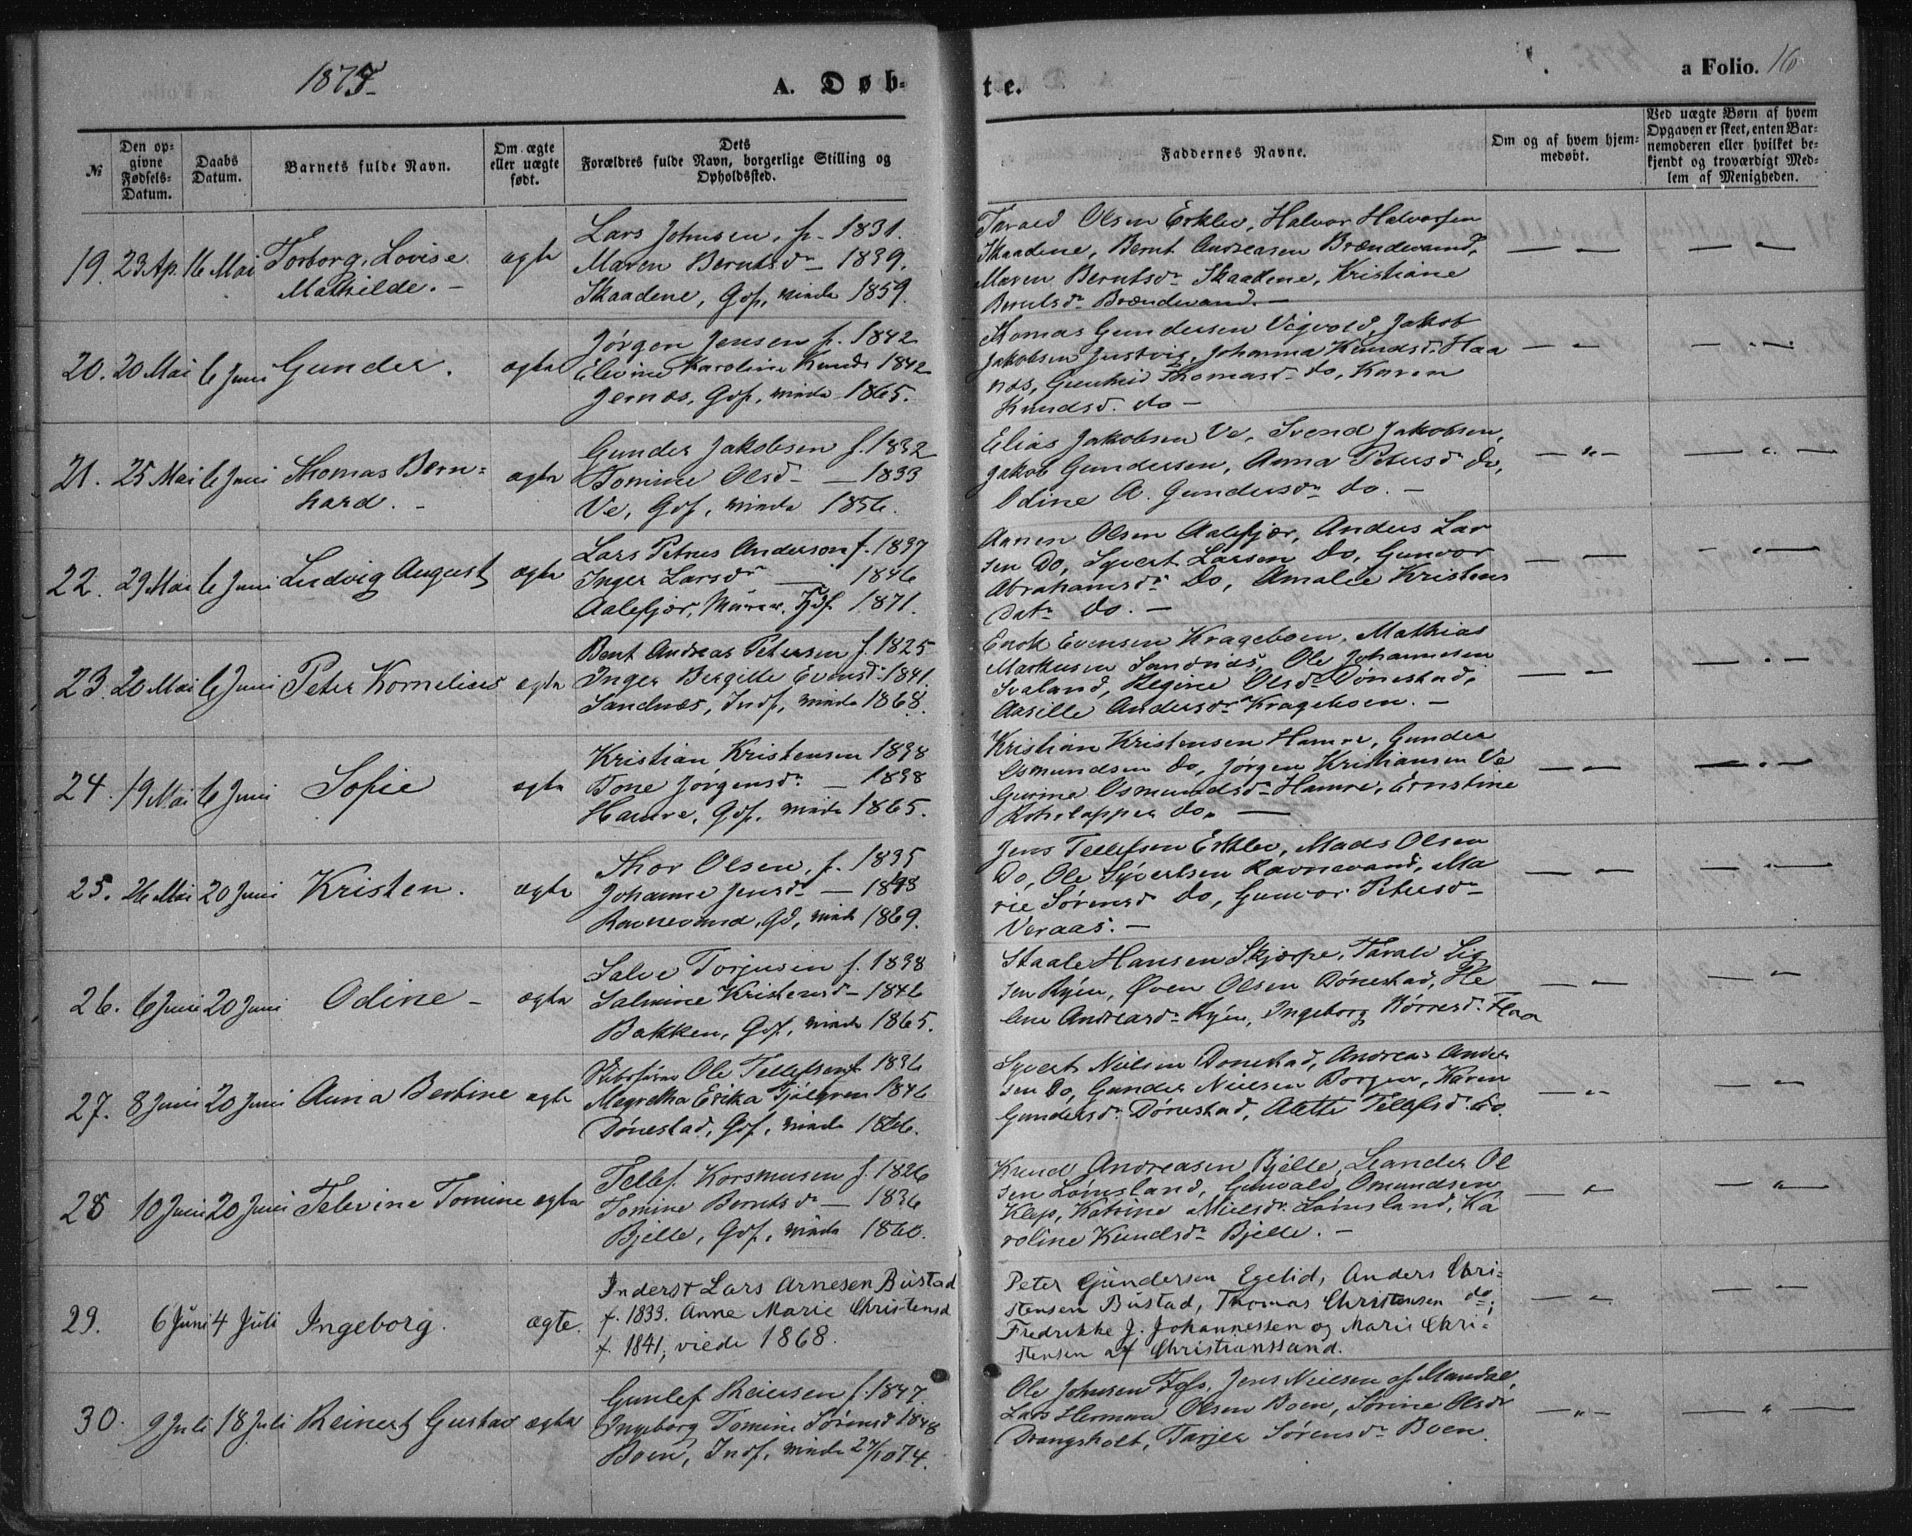 1875.
A. Døb-
te.
a Folio. 16
№
Den op-
givne
Fødsels-
Datum.
Daabs
Datum.
Barnets fulde Navn.
Om ægte
eller uægte
født.
Dets
Forældres fulde Navn, borgerlige Stilling og
Opholdssted.
Faddernes Navne.
Om og af hvem hjem-
medøbt.
Ved uægte Børn af hvem
Opgaven er skeet, enten Bar-
nemoderen eller hvilket be-
kjendt og troværdigt Med-
lem af Menigheden.
19. 23 Ap. 16 Mai Torborg Lovise
Mathilde. -
ægte
Lars Johnsen, f. 1831.
Maren Berntsdr - 1839.
Skaadene, Gdf, viede 1859.
Tarald Olsen Erklev, Halvor Halvorsen
Skaadene, Bernt Andreasen Brændevand,
Maren Berntsdr Skaadene, Kristiane
Berntsdr Brændevand. -
20. 20 Mai 6 Juni Gunder.
ægte
Jørgen Jensen f. 1842
Elevine Karoline Knudsd 1842
Jernæs, Gdf, viede 1865.
Thomas Gundersen Vigvold, Jakob
Jakobsen Justvig, Johanna Knudsd. Haa
næs, Gunhild Thomasd. do, Karen
Knudsd. do -
21. 25 Mai 6 Juni Thomas Bern=
hard. -
ægte
Gunder Jakobsen f. 1832
Tomine Olsd - 1833
Ve, Gdf, viede 1856.
Elias Jakobsen Ve, Svend Jakobsen,
Jakob Gundersen, Anna Petersd do,
Odine A. Gundersdr do. -
22. 29 Mai 6 Juni Ludvig August
ægte
Lars Petrus Anderson f. 1837
Inger Larsdr - 1846
Aalefjær, Murer, 1871.
Annen Olsen Aalefjær, Anders Lar
sen Do, Syvert Larsen Do, Gunvor
Abrahamsdr Do, Amalie Kristens
datr do. -
23. 20 Mai 6 Juni Peter Kornelius
ægte
Bent Andreas Petersen f. 1825
Inger Bergitte Evensd. 1841.
Sandnæs, Indf, viede 1868.
Enok Evensen Krageboen, Mathias
Markusen Sandnæs, Ole Johannesen
Svaland, Regine Olsdr Dønestad,
Aasille Andersdr Krageboen. -
24. 19 Mai 6 Juni Sofie
ægte
Kristian Kristensen 1838
Tone Jørgensdr - 1838
Hamre, Gdf, viede 1865.
Kristian Kristensen Hamre, Gunder
Osmundsen do, Jørgen Kristiansen Ve
Gurine Osmundsdr Hamre, Ernstine
do. -
25. 26 Mai 20 Juni Kristen.
ægte
Thor Olsen, f. 1835
Johanne Jensdr - 1843
Ravnevand, Gd, viede 1869.
Jens Tellefsen Erklev, Mads Olsen
Do, Ole Syvertsen Ravnevand, Ma
rie Sørensd do, Gunvor Petersdr
Veraas. -
26. 6 Juni 20 Juni Odine -
ægte
Salve Torjusen f. 1838
Salmine Kristensd - 1846
Bakken, Gdf, viede 1865.
Staale Hansen Skjærpe, Tarald Lig
sen Ryen, Øven Olsen Dønestad, He
lene Andreasdr Ryen, Ingeborg Børresd. Flaa
27. 8 Juni 20 Juni Anna Bertine
ægte
Ole Tellefsen f. 1836
Megretha Erika 1846
Dønestad, Gdf, viede 1866.
Syvert Nielsen Dønestad, Andreas Ander
sen Do, Gunder Nielsen Borgen, Karen
Gundersdr Dønestad, Alette Tellefsd. do.
28 10 Juni 20 Juni Televine Tomine
ægte
Tellef Korsmusen f. 1826
Tomine Berntsdr - 1836
Bjelle, Gdf, viede 1860.
Knud Andreasen Bjelle, Leander Ol
sen Lømsland, Gunvald Omundsen
Klep, Katrine Nielsdr Lømsland, Ka
roline Knudsdr Bjelle. -
29. 6 Juni 4 Juli Ingeborg.
ægte.
Inderst Lars Arnesen Bustad
f. 1833. Anne Marie Christensd
f. 1841, viede 1868.
Peter Gundersen Egelid, Anders Chri=
stensen Bustad, Thomas Christensen do;
Fredrikke J. Johannessen og Marie Chri=
stensen af Christianssand.
30. 9 Juli 18 Juli Reinert Gustav
ægte
Gunlef Reiersen f. 1847.
Ingeborg Tomine Sørensd 1848
Boen, Indf, viede 27/10 74.
Ole Johnsen Foss, Jens Nielsen af Mandal,
Lars Herman Olsen Boen, Sørine Olsdr
Drangsholt, Tarjer Sørensdr Boen.